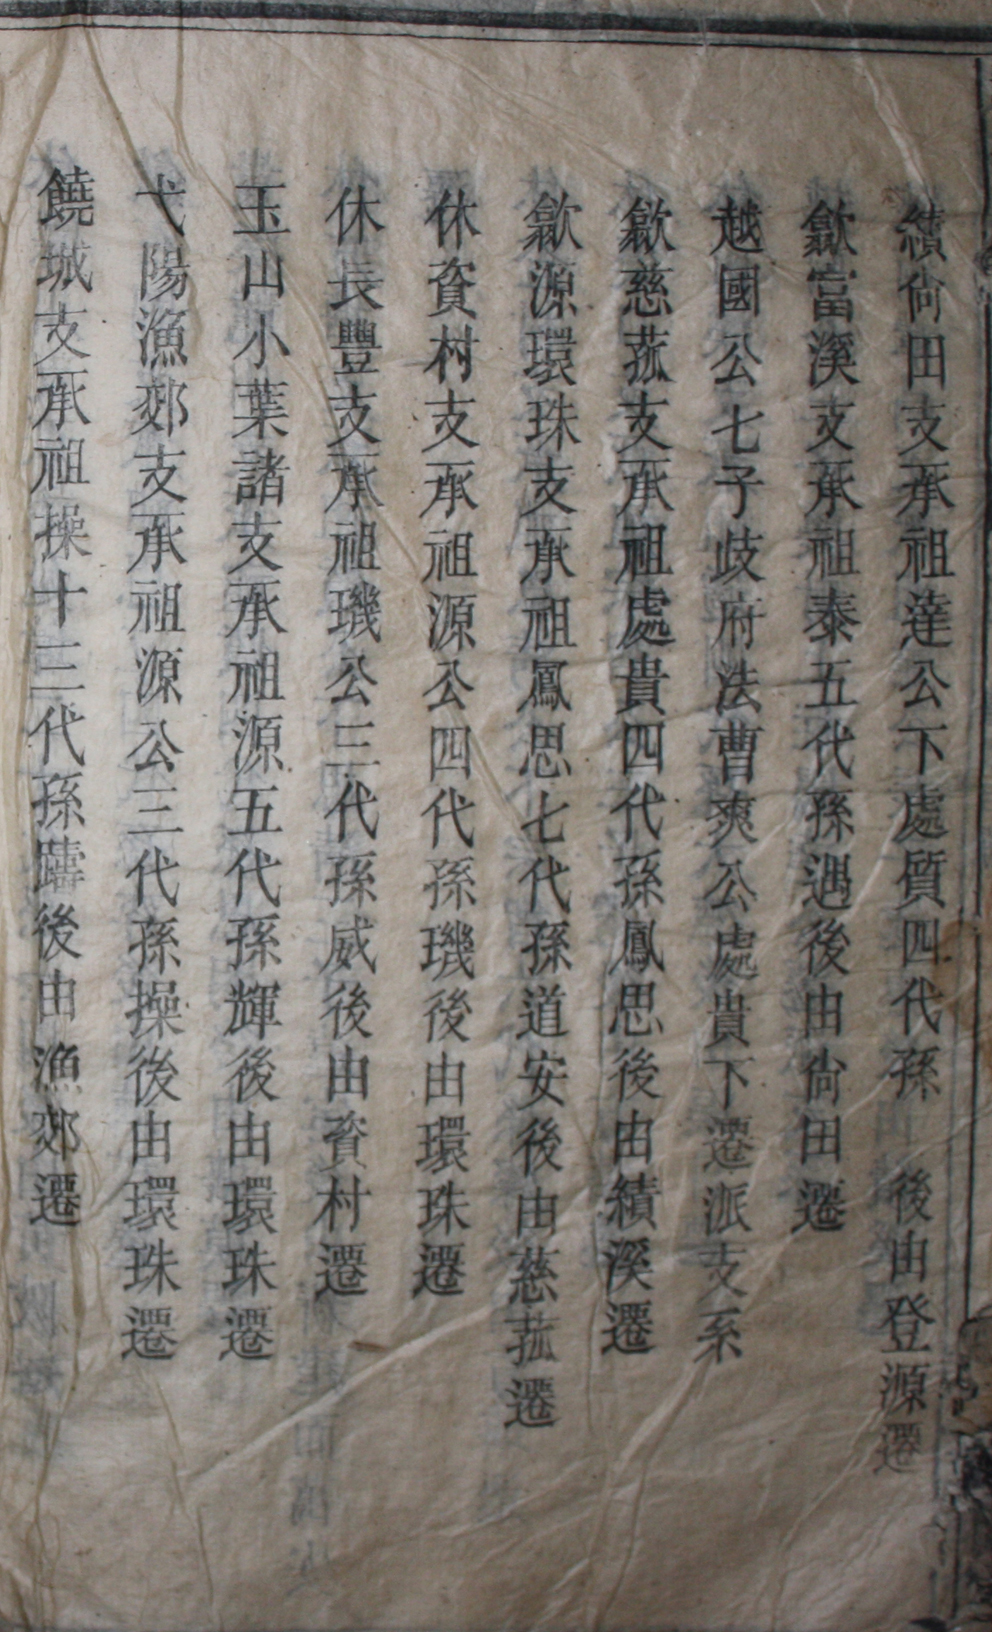 績尙田支承祖達公下處質四代孫　後由登源遷
歙富溪支承祖泰五代孫遇後由尙田遷
越國公七子歧府法曹爽公處貴下遷派支系
歙慈菰支承祖處貴四代孫鳳思後由績溪遷
歙源環珠支承祖鳳思七代孫道安後由慈菰遷
休資村支承祖源公四代孫璣後由環珠遷
休長豐支承祖璣公三代孫威後由資村遷
玉山小葉諸支承祖源五代孫輝後由環珠遷
弋陽漁郊支承祖源公三代孫操後由環珠遷
饒城支承祖操十三代孫躊後由漁郊遷